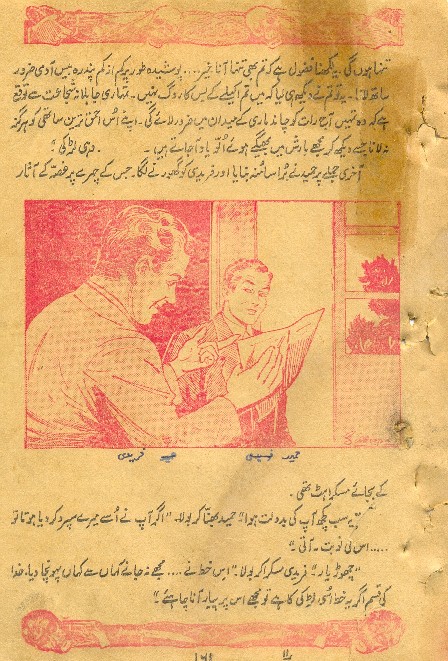 تنہا ہوں گی۔ یہ لکھنا فضول ہے کہ تم بھی تنہا آنا خیر.... پوشیدہ طور پر کم از کم پندرہ بیس آدمی ضرور
ساتھ لانا۔ یہ تو تم نے دیکھ ہی لیا کہ میں تم اکیلے کے بس کا روگ نہیں۔ تمہاری جاہلانہ شجاعت سے توقع
ہے کہ وہ تمہیں آج رات کو چاند ماری کے میدان میں ضرور لائے گی۔ اپنے اس احمق ترین ساتھی کو ہرگز
نہ لانا جسے دیکھ کر مجھے بارش میں بھیگے ہوئے اُلّو یاد آ جاتے ہیں۔ وہی لڑکی؟
آخری جملے پر حمید نے بُرا سا منہ بنایا اور فریدی کو گھورنے لگا۔ جس کے چہرے پر غصہ کے آثار
حمید فریدی
کے بجائے مسکراہٹ تھی۔
یہ سب کچھ آپ کی بدولت ہوا" حمید بھنّا کر بولا۔ "اگر آپ نے اُسے میرے سپرد کر دیا ہوتا تو
.....اس کی نوبت نہ آتی۔"
"چھوڑ یار" فریدی مسکرا کر بولا۔ "اس خط نے .... مجھے نہ جانے کہاں سے کہاں پہونچا دیا۔ خدا
کی قسم اگر یہ خط اُسی لڑکی کا ہے تو مجھے اس پر پیار آنا چاہئے۔"